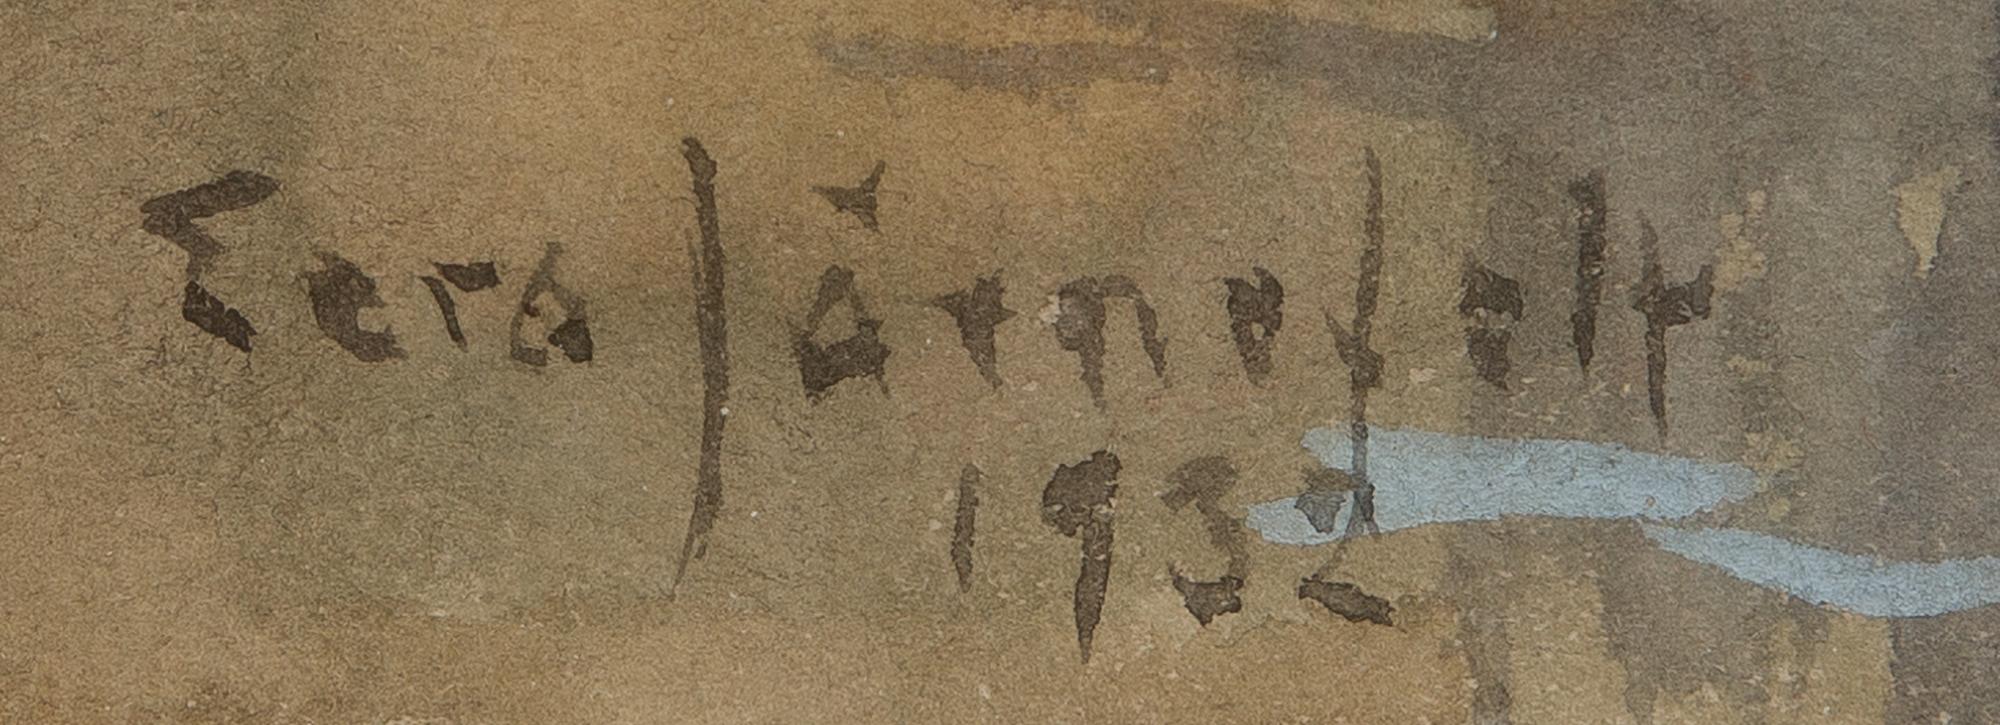 Eero Järnefelt
1932